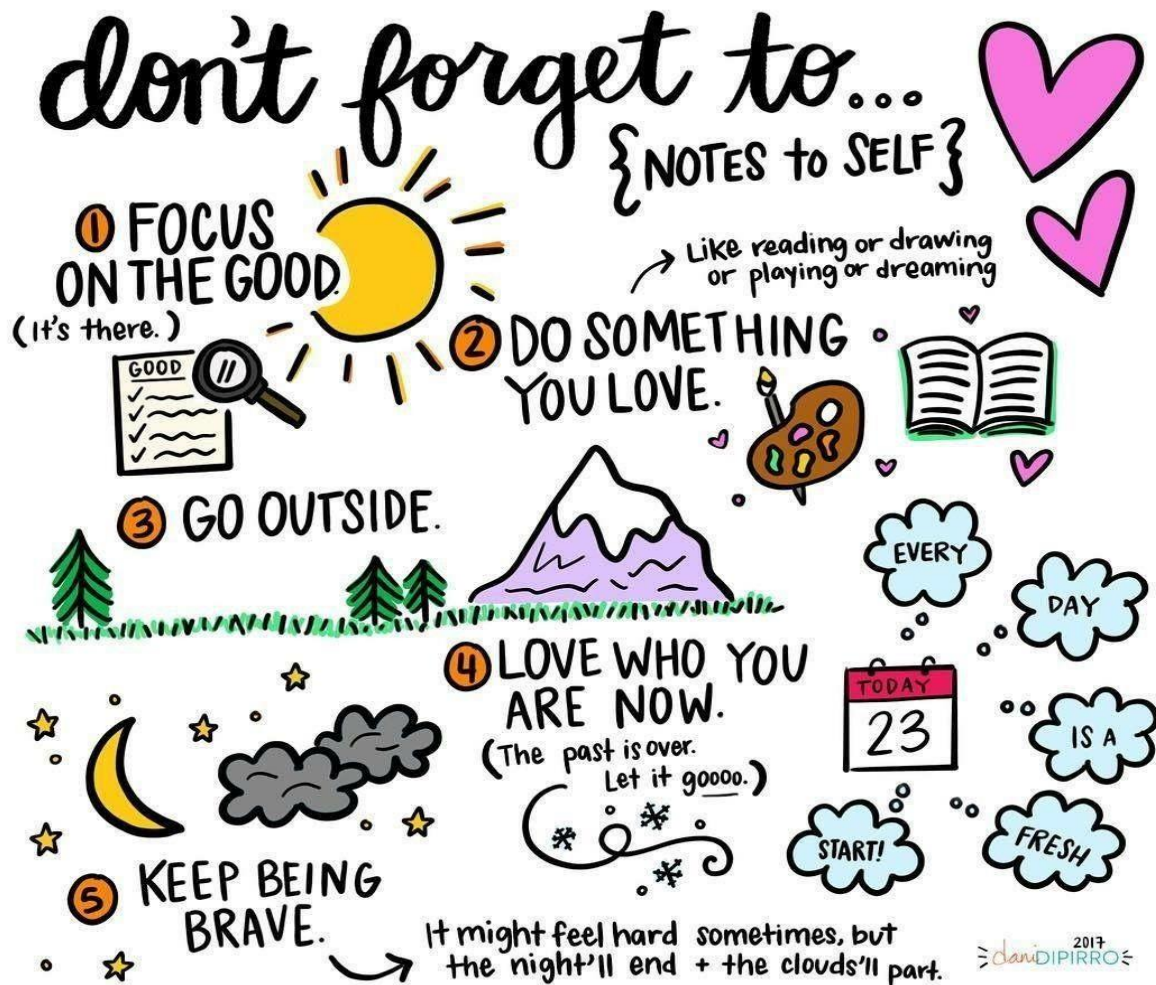 don't forget to...
{NOTES to SELF}
1 FOCUS
ON THE GOOD.
(It's there.)
GOOD
2 DO SOMETHING
YOU LOVE.
Like reading or drawing
or playing or dreaming
3 GO OUTSIDE.
4 LOVE WHO YOU
ARE NOW.
(The past is over.
Let it goooo.)
TODAY
23
EVERY
DAY
IS A
FRESH
START!
5 KEEP BEING
BRAVE.
It might feel hard sometimes, but
the night'll end + the clouds'll part.
2017
daniDIPIRRO